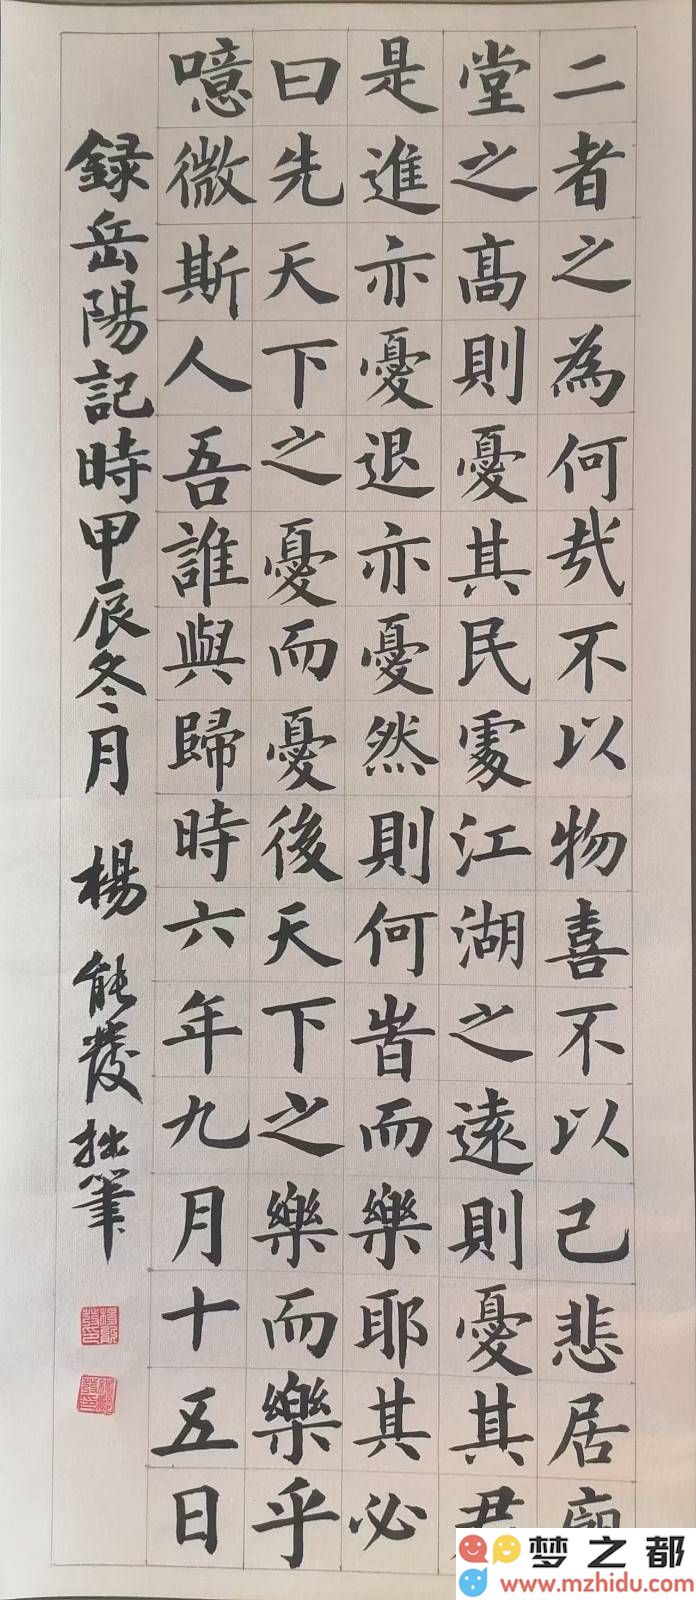 二者之為何哉不以物喜不以己悲居廟
堂之髙則憂其民處江湖之遠則憂其君
是進亦憂退亦憂然則何旹而樂耶其必
曰先天下之憂而憂後天下之樂而樂乎
噫微斯人吾誰與歸時六年九月十五日
録岳陽記時甲辰冬月 楊能發拙筆
梦之都
www.mzhidu.com